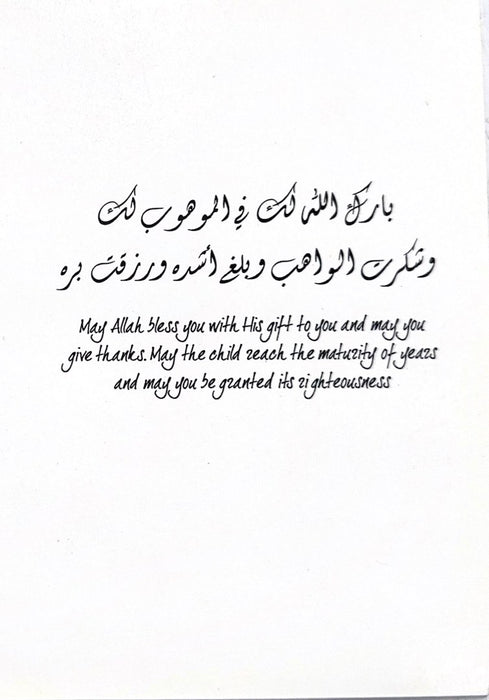 بارك الله لك في الموهوب لك
وشكرت الواهب وبلغ أشده ورزقت بره
May Allah bless you with His gift to you and may you
give thanks. May the child reach the maturity of years
and may you be granted its righteousness